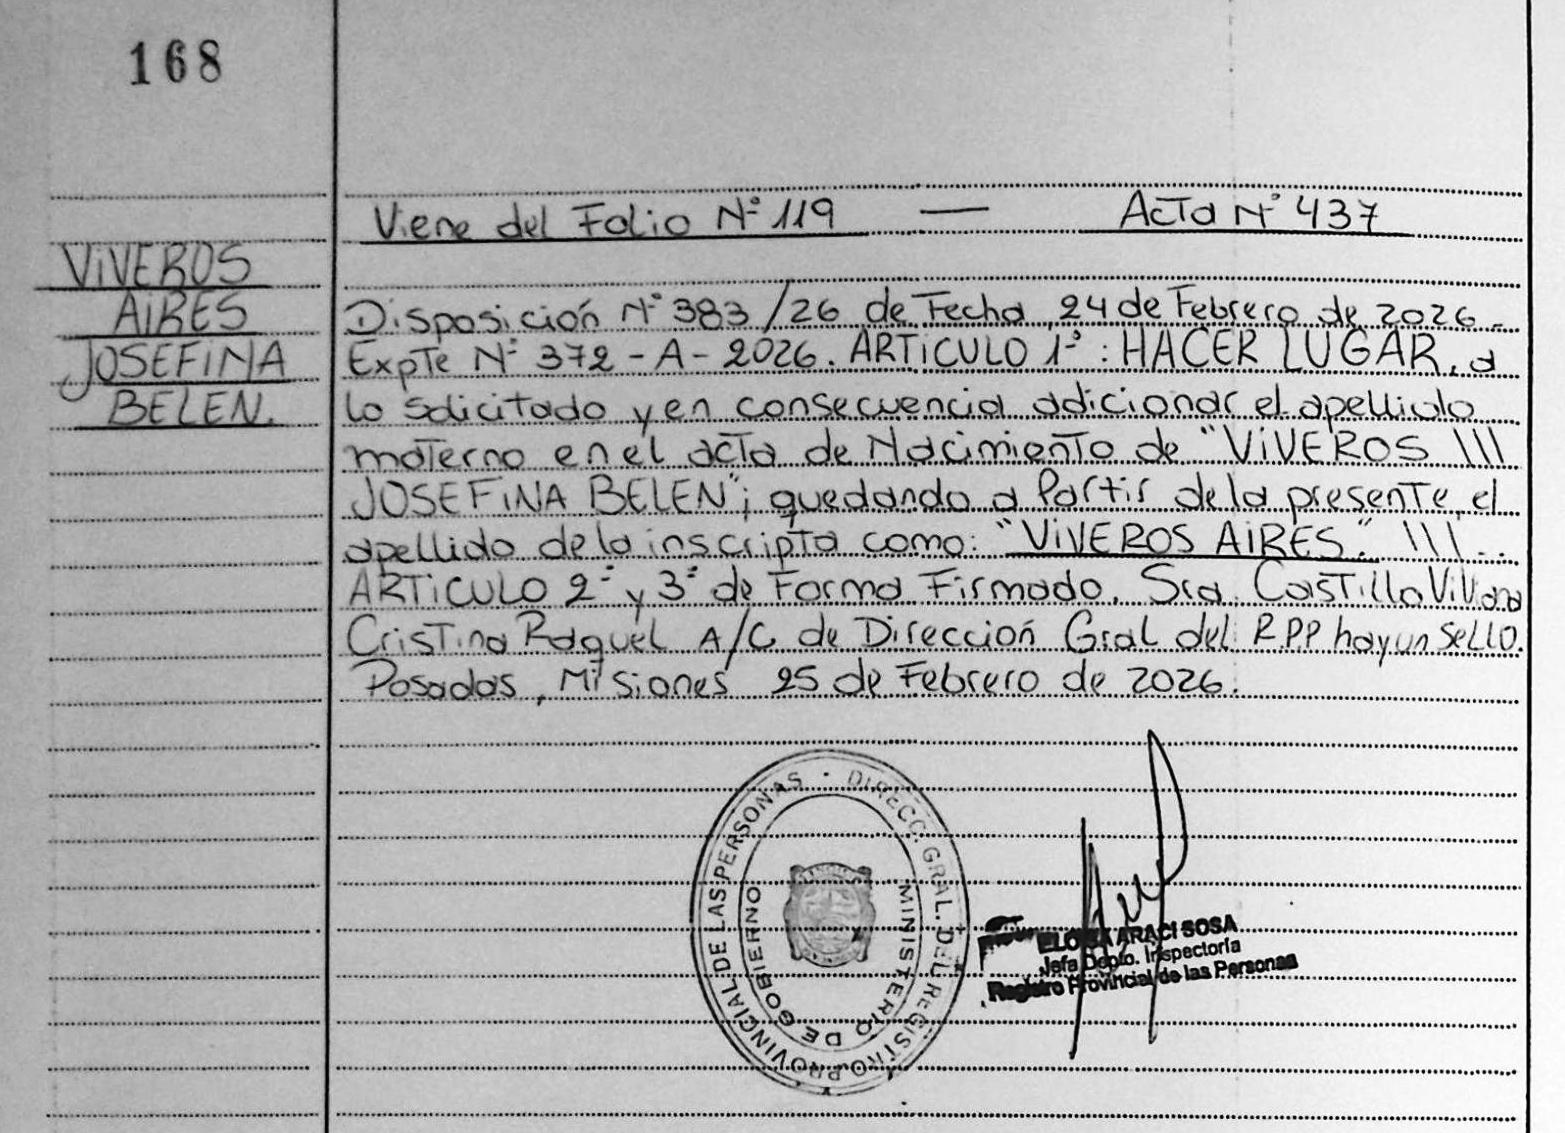 168
Viene del Folio N° 119 — Acta N° 437
VIVEROS
AIRES
JOSEFINA
BELEN.
Disposición N° 383/26 de Fecha 24 de Febrero de 2026.
Expte N° 372-A-2026. ARTICULO 1°: HACER LUGAR, a
lo solicitado y en consecuencia adicionar el apellido
materno en el acta de Nacimiento de "VIVEROS \\\
JOSEFINA BELEN"; quedando a Partir de la presente, el
apellido de la inscripta como: "VIVEROS AIRES." \\\..
ARTICULO 2° y 3° de Forma Firmado. Sra. Castillo Viviana
Cristina Raquel A/C de Dirección Gral del R.P.P hay un sello.
Posadas, Misiones 25 de Febrero de 2026.
DIRECC. GRAL. DEL REGISTRO PROVINCIAL DE LAS PERSONAS
MINISTERIO DE GOBIERNO
ELOISA ARACI SOSA
Jefa Depto. Inspectoría
Registro Provincial de las Personas